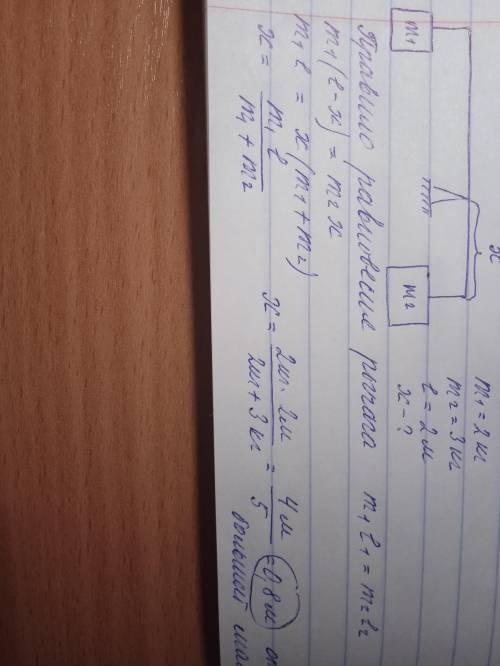 x
m₁
m₂
m₁ = 2 кг
m₂ = 3 кг
l = 2 м
x - ?
Правило равновесия рычага m₁ l₁ = m₂ l₂
m₁(l - x) = m₂ x
m₁ l = x(m₁ + m₂)
x = m₁ l / m₁ + m₂
x = 2кг · 2м / 2кг + 3 кг = 4 м / 5 = 0,8 м от
большей